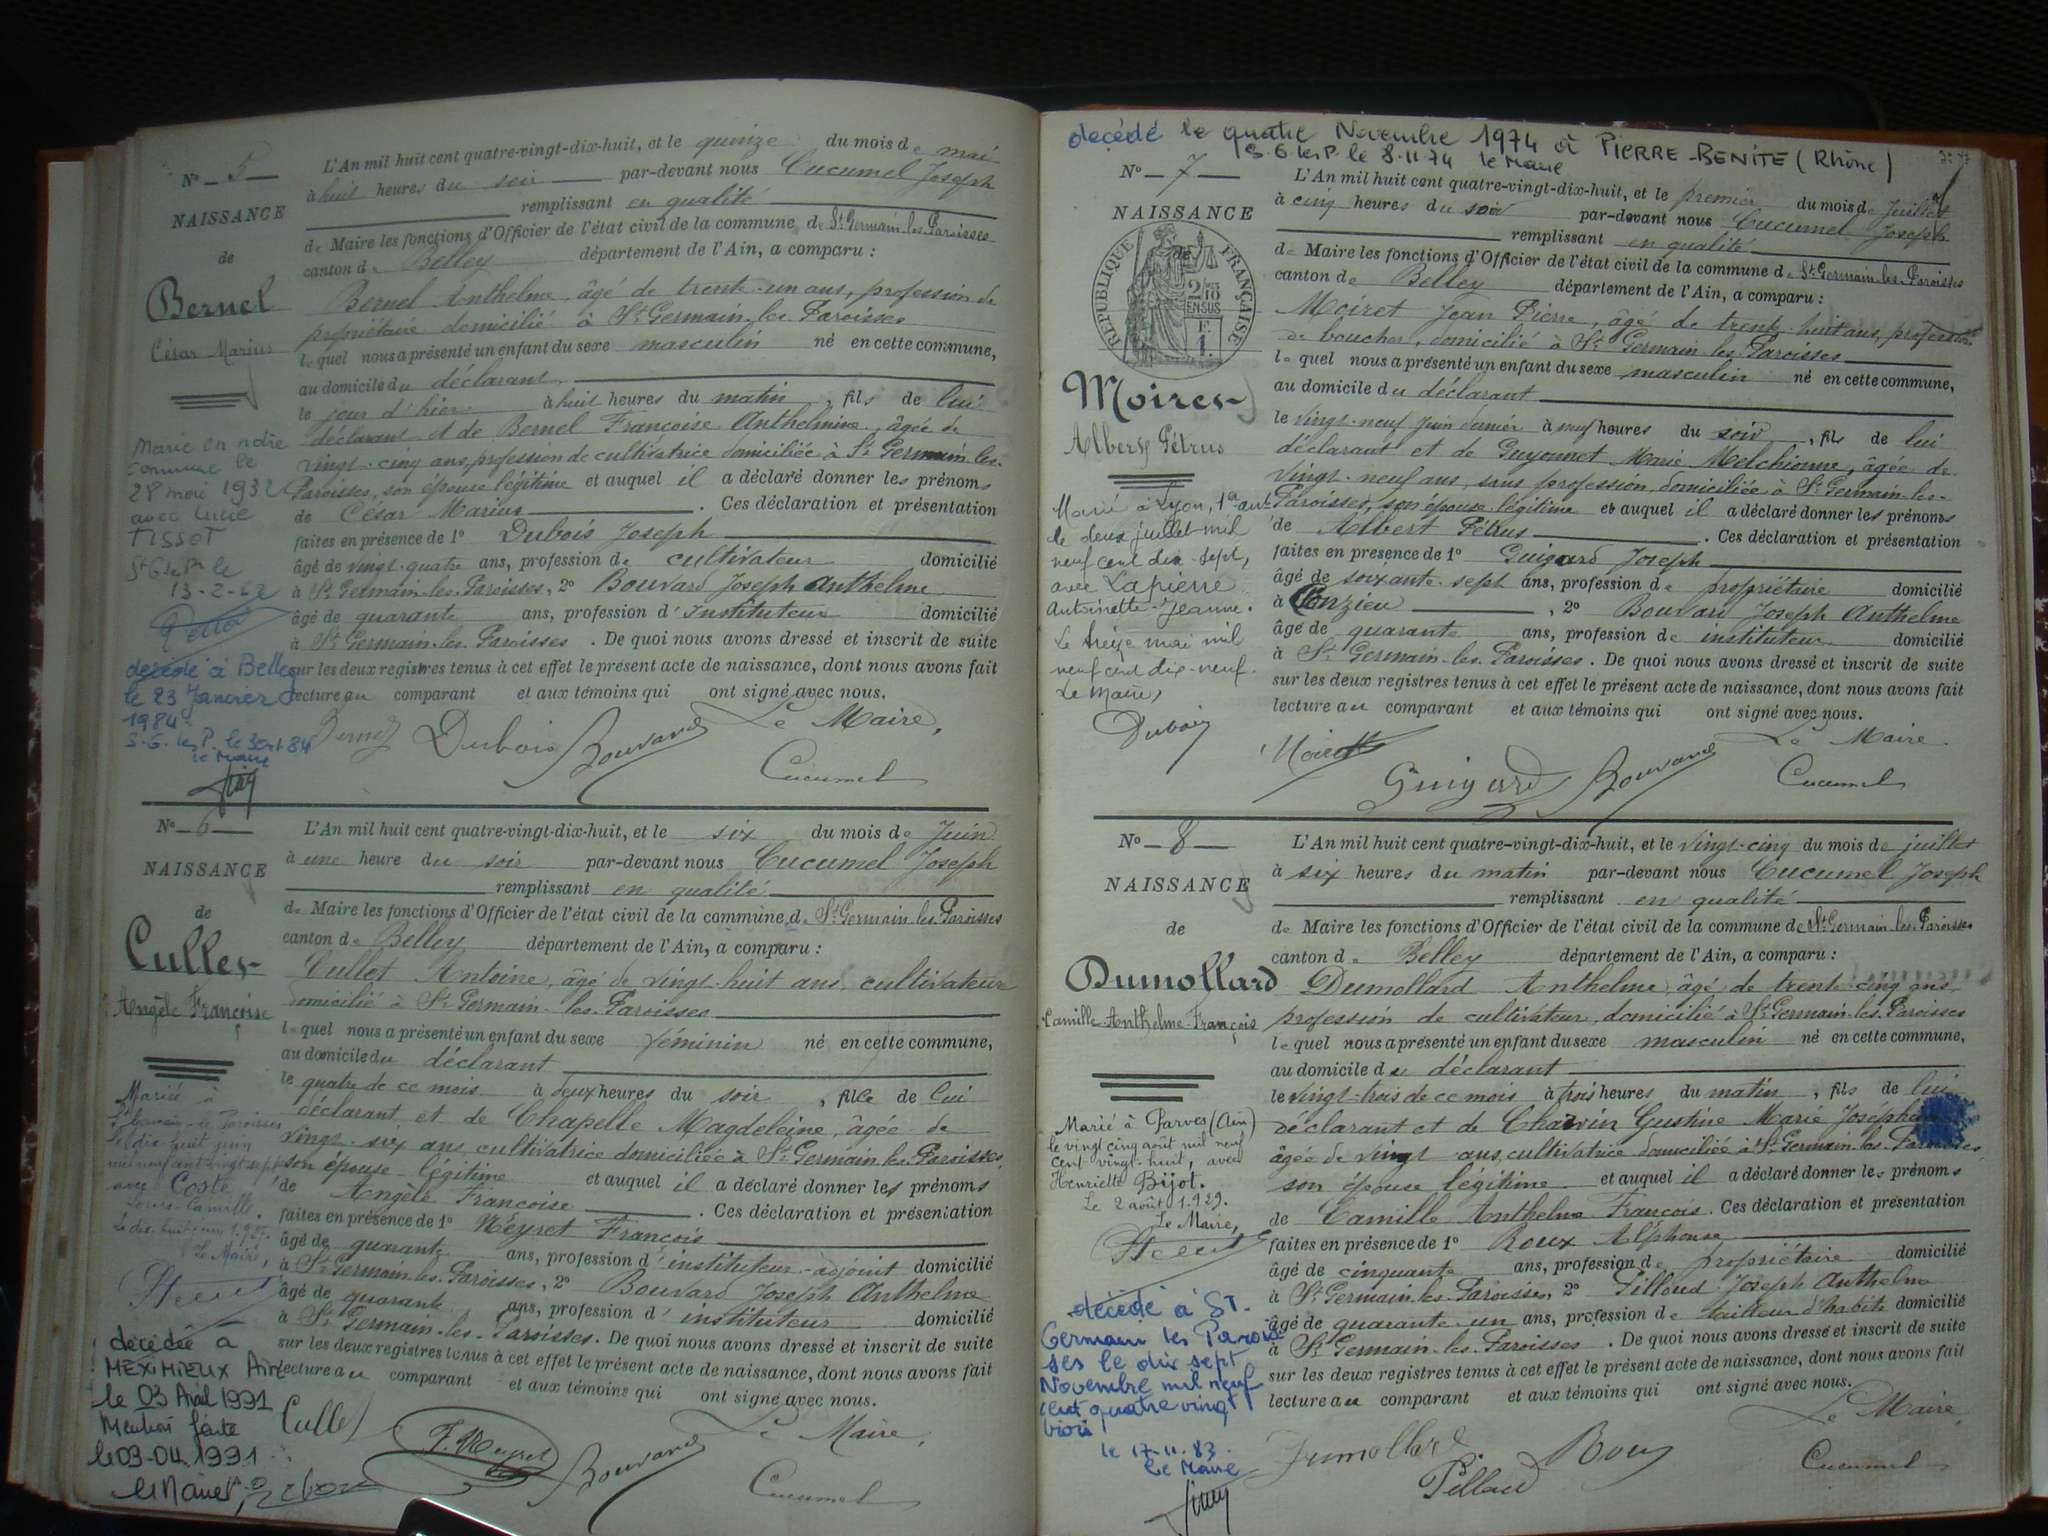 N° 5
NAISSANCE
de
Bernel
César Marius
Marié en notre
commune le
28 mai 1932
avec Lucie
TISSOT
13-2-62
décédé à Belley
le 23 Janvier
1984
S.G. les P. le
le Maire
L'An mil huit cent quatre-vingt-dix-huit, et le quinze du mois de mai
à huit heures du soir par-devant nous Cucumel Joseph
remplissant en qualité
de Maire les fonctions d'Officier de l'état civil de la commune de St Germain-les-Paroisses
canton de Belley département de l'Ain, a comparu :
Bernel Anthelme, âgé de trente-un ans, profession de
propriétaire domicilié à St Germain-les-Paroisses
lequel nous a présenté un enfant du sexe masculin né en cette commune,
au domicile du déclarant
le jour d'hier à huit heures du matin, fils de lui
déclarant et de Bernel Françoise Anthelmine, âgée de
vingt-cinq ans, profession de cultivatrice domiciliée à St Germain-les-
Paroisses, son épouse légitime et auquel il a déclaré donner les prénoms
de César Marius. Ces déclaration et présentation
faites en présence de 1° Dubois Joseph
âgé de vingt-quatre ans, profession de cultivateur domicilié
à St Germain-les-Paroisses, 2° Bouvard Joseph Anthelme
âgé de quarante ans, profession d'Instituteur domicilié
à St Germain-les-Paroisses. De quoi nous avons dressé et inscrit de suite
sur les deux registres tenus à cet effet le présent acte de naissance, dont nous avons fait
lecture au comparant et aux témoins qui ont signé avec nous.
Dubois Bouvard Le Maire,
Cucumel
N° 6
NAISSANCE
de
Cullet
Angèle Françoise
Mariée à
St Germain-les-Paroisses
le dix huit juin
mil neuf cent vingt sept
avec Coste
Louis-Camille.
Le Maire,
décédée à
MEXIMIEUX Ain
le 03 Avril 1991
Mention faite
le 09-04-1991
le Maire
L'An mil huit cent quatre-vingt-dix-huit, et le six du mois de Juin
à une heure du soir par-devant nous Cucumel Joseph
remplissant en qualité
de Maire les fonctions d'Officier de l'état civil de la commune de St Germain-les-Paroisses
canton de Belley département de l'Ain, a comparu :
Cullet Antoine, âgé de vingt-huit ans, cultivateur
domicilié à St Germain-les-Paroisses
lequel nous a présenté un enfant du sexe féminin né en cette commune,
au domicile du déclarant
le quatre de ce mois à deux heures du soir, fille de lui
déclarant et de Chapelle Magdeleine, âgée de
vingt-six ans cultivatrice domiciliée à St Germain-les-Paroisses,
son épouse légitime et auquel il a déclaré donner les prénoms
de Angèle Françoise. Ces déclaration et présentation
faites en présence de 1° Neyret François
âgé de quarante ans, profession d'instituteur-adjoint domicilié
à St Germain-les-Paroisses, 2° Bouvard Joseph Anthelme
âgé de quarante ans, profession d'instituteur domicilié
à St Germain-les-Paroisses. De quoi nous avons dressé et inscrit de suite
sur les deux registres tenus à cet effet le présent acte de naissance, dont nous avons fait
lecture au comparant et aux témoins qui ont signé avec nous.
Cullet F. Neyret Bouvard Le Maire,
Cucumel
décédé le quatre Novembre 1974 à PIERRE-BENITE (Rhône)
S.G. les P. le 8.11.74 le Maire
N° 7
NAISSANCE
de
RÉPUBLIQUE FRANÇAISE
Moiret
Albert Pétrus
Marié à Lyon, 1er arrt
le deux juillet mil
neuf cent dix-sept,
avec Lapierre
Antoinette-Jeanne.
Le treize mai mil
neuf cent dix-neuf.
Le Maire,
Dubois
L'An mil huit cent quatre-vingt-dix-huit, et le premier du mois de Juillet
à cinq heures du soir par-devant nous Cucumel Joseph
remplissant en qualité
de Maire les fonctions d'Officier de l'état civil de la commune de St Germain-les-Paroisses
canton de Belley département de l'Ain, a comparu :
Moiret Jean Pierre, âgé de trente-huit ans, profession
de boucher, domicilié à St Germain-les-Paroisses
lequel nous a présenté un enfant du sexe masculin né en cette commune,
au domicile du déclarant
le vingt-neuf juin dernier à neuf heures du soir, fils de lui
déclarant et de Guyonnet Marie Melchionne, âgée de
vingt-neuf ans, sans profession, domiciliée à St Germain-les-
Paroisses, son épouse légitime et auquel il a déclaré donner les prénoms
de Albert Pétrus. Ces déclaration et présentation
faites en présence de 1° Guigard Joseph
âgé de soixante-sept ans, profession de propriétaire domicilié
à Conzieu, 2° Bouvard Joseph Anthelme
âgé de quarante ans, profession de instituteur domicilié
à St Germain-les-Paroisses. De quoi nous avons dressé et inscrit de suite
sur les deux registres tenus à cet effet le présent acte de naissance, dont nous avons fait
lecture au comparant et aux témoins qui ont signé avec nous.
Moiret Guigard Bouvard Le Maire.
Cucumel
N° 8
NAISSANCE
de
Dumollard
Camille-Anthelme-François
Marié à Parves (Ain)
le vingt cinq août mil neuf
cent vingt-huit, avec
Henriette Bijot.
Le 2 août 1929.
Le Maire,
décédé à St.
Germain les Parois-
ses le dix sept
Novembre mil neuf
cent quatre vingt
trois
le 17-11-83.
Le Maire
L'An mil huit cent quatre-vingt-dix-huit, et le vingt-cinq du mois de juillet
à six heures du matin par-devant nous Cucumel Joseph
remplissant en qualité
de Maire les fonctions d'Officier de l'état civil de la commune de St Germain-les-Paroisses
canton de Belley département de l'Ain, a comparu :
Dumollard Anthelme, âgé de trente-cinq ans
profession de cultivateur, domicilié à St Germain-les-Paroisses
lequel nous a présenté un enfant du sexe masculin né en cette commune,
au domicile du déclarant
le vingt-trois de ce mois à trois heures du matin, fils de lui
déclarant et de Charvin Gustine Marie Josephine
âgée de vingt ans, cultivatrice domiciliée à St Germain-les-Paroisses,
son épouse légitime et auquel il a déclaré donner les prénoms
de Camille Anthelme François. Ces déclaration et présentation
faites en présence de 1° Roux Alphonse
âgé de cinquante ans, profession de propriétaire domicilié
à St Germain-les-Paroisses, 2° Pilloud Joseph Anthelme
âgé de quarante-un ans, profession de tailleur d'habits domicilié
à St Germain-les-Paroisses. De quoi nous avons dressé et inscrit de suite
sur les deux registres tenus à cet effet le présent acte de naissance, dont nous avons fait
lecture au comparant et aux témoins qui ont signé avec nous.
Dumollard Roux Le Maire,
Pilloud Cucumel